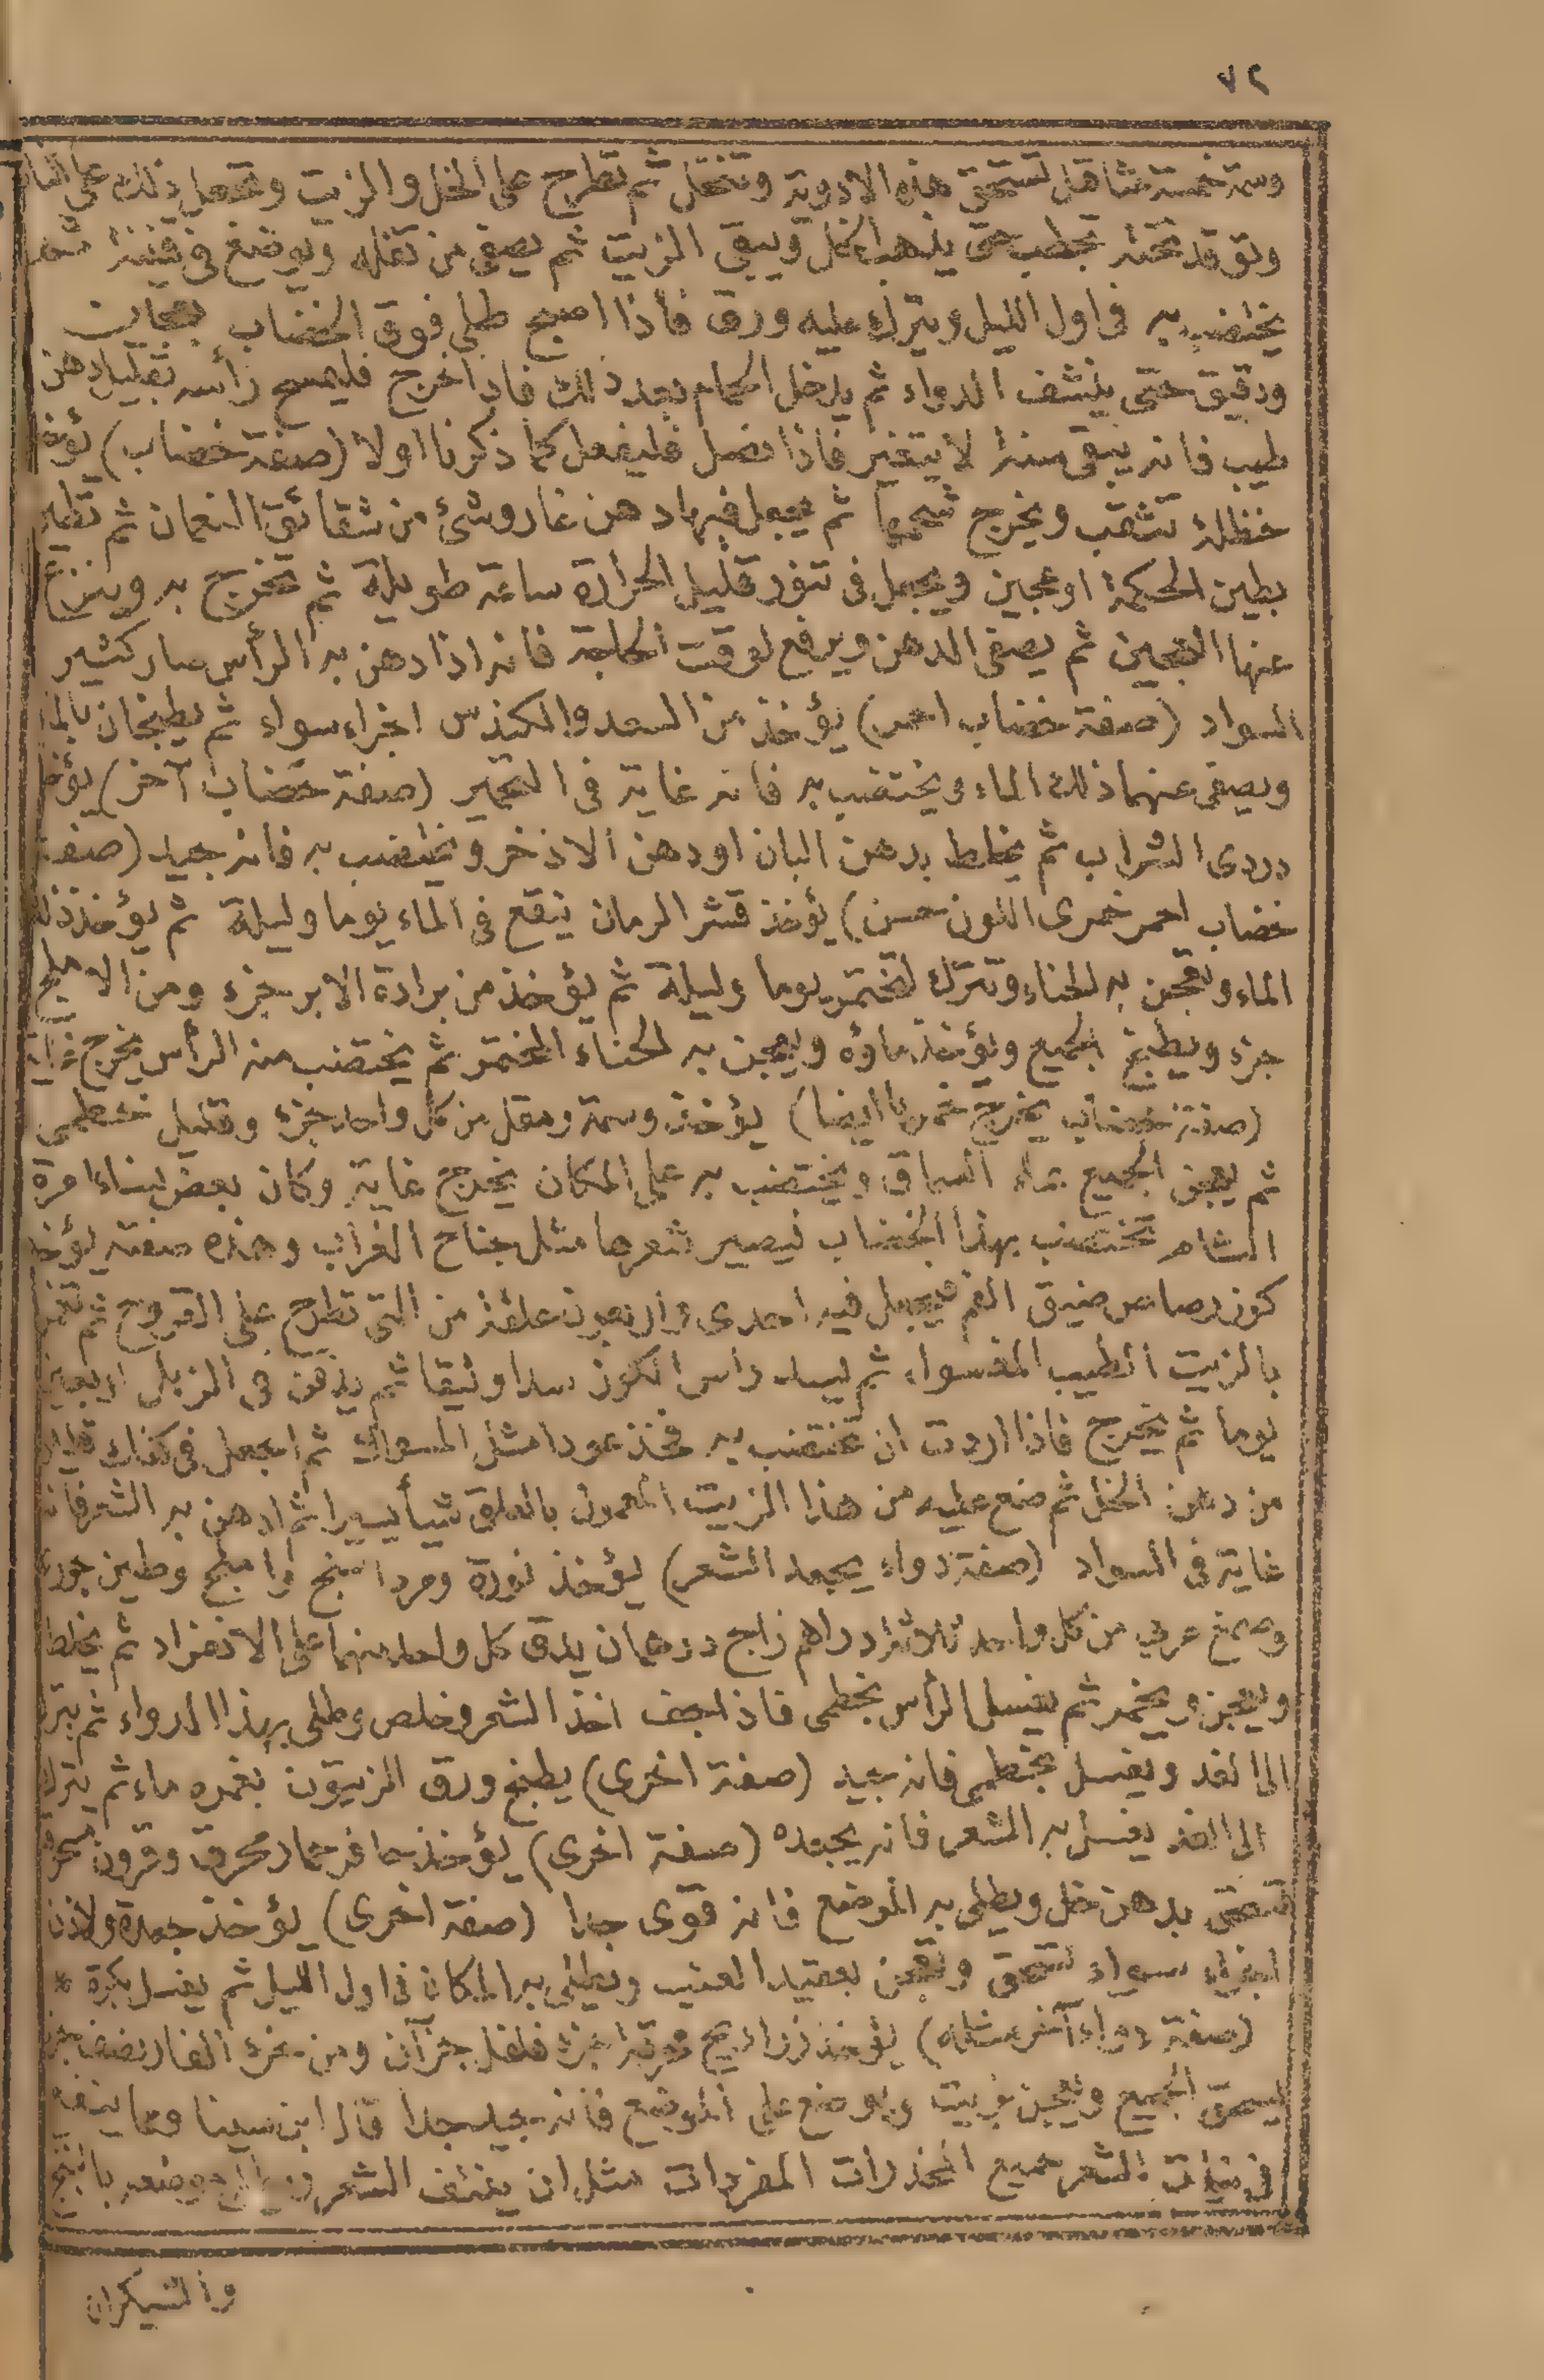 ٧٢
وسمة خمسة مثاقيل تسحق هذه الادوية وتنخل ثم تطرح على الخل والزيت وتجعل ذلك على النار
وتوقد تحته بحطب حتى يذهب الخل ويبقى الزيت ثم يصفى من ثفله ويوضع فى قنينة ثم
يختضب به فى اول الليل ويترك عليه ورق فاذا اصبح طلى فوق الخضاب بعجين
ودقيق حتى ينشف الدواء ثم يدخل الحمام بعد ذلك فاذا خرج فليمسح رأسه بقليل دهن
طيب فانه يبقى سنة لا يتغير فاذا نصل فليفعل كما ذكرنا اولا (صفة خضاب) يؤخذ
حنظلة تثقب ويخرج شحمها ثم يجعل فيها دهن غار وشئ من شقائق النعمان ثم تطين
بطين الحكمة او عجين ويجعل فى تنور قليل الحرارة ساعة طويلة ثم تخرج به وينزع
عنها العجين ثم يصفى الدهن ويرفع لوقت الحاجة فانه اذا دهن به الرأس صار كثير
السواد (صفة خضاب احمر) يؤخذ من السعد والكندس اجزاء سواء ثم يطبخان بالماء
ويصفى عنهما ذلك الماء ويختضب به فانه غاية فى التحمير (صفة خضاب آخر) يؤخذ
دردى الشراب ثم يخلط بدهن البان او دهن الاذخر ويختضب به فانه جيد (صفة
خضاب احمر خمرى اللون حسن) يؤخذ قشر الرمان ينقع فى الماء يوما وليلة ثم يؤخذ ذلك
الماء وتعجن به الحناء وتترك لتختمر يوما وليلة ثم يؤخذ من برادة الابر جزء ومن الاهليلج
جزء ويطبخ الجميع ويؤخذ ماؤه ويعجن به الحناء المختمر ثم يختضب منه الرأس يخرج غاية
(صفة خضاب يخرج خمريا ايضا) يؤخذ وسمة ومقل من كل واحد جزء وقليل خطمى
ثم يعجن الجميع بماء السماق ويختضب به على المكان يخرج غاية وكان بعض نساء امرة
الشام تختضب بهذا الخضاب فيصير شعرها مثل جناح الغراب وهذه صفته يؤخذ
كوز رصاص ضيق الفم فيجعل فيه احدى واربعون علقة من التى تطرح على القروح ثم تغمر
بالزيت الطيب المغسول ثم ليسد رأس الكوز سدا وثيقا ثم يدفن فى الزبل اربعين
يوما ثم يخرج فاذا اردت ان تختضب به فخذ عودا مثل المسواك ثم اجعل فى كفك قليلا
من دهن الخل ثم ضع عليه من هذا الزيت المعمول بالعلق شيأ يسيرا ثم ادهن به الشعر فانه
غاية فى السواد (صفة دواء يجعد الشعر) يؤخذ نورة ومرداسنج واملج وطين جورى
وصمغ عربي من كل واحد ثلاثة دراهم زاج درهمان يدق كل واحد منهما على الانفراد ثم يخلط
ويعجن ويخمر ثم يغسل الرأس بخطمى فاذا جف اخذ الشعر وخلص وطلى بهذا الدواء ثم يترك
الى الغد ويغسل بخطمى فانه جيد (صفة اخرى) يطبخ ورق الزيتون بغمره ماء ثم يترك
الى الغد يغسل به الشعر فانه يجعده (صفة اخرى) يؤخذ حافر حمار محرق وقرون محرقة
تسحق بدهن خل ويطلى به الموضع فانه قوى جدا (صفة اخرى) يؤخذ جعدة ولاذن
اجزاء سواء تسحق وتعجن بعقيد العنب ويطلى به المكان فى اول الليل ثم يغسل بكرة *
(صفة دواء آخر مثله) يؤخذ زراريح جزء فلفل جزآن ومن خرء الفار نصف جزء
يسحق الجميع ويعجن بزيت ويوضع على الموضع فانه جيد جدا قال ابن سينا ومما ينفع
فى نبات الشعر جميع المخدرات المفردات مثل ان ينتف الشعر بالبنج
والشيكران